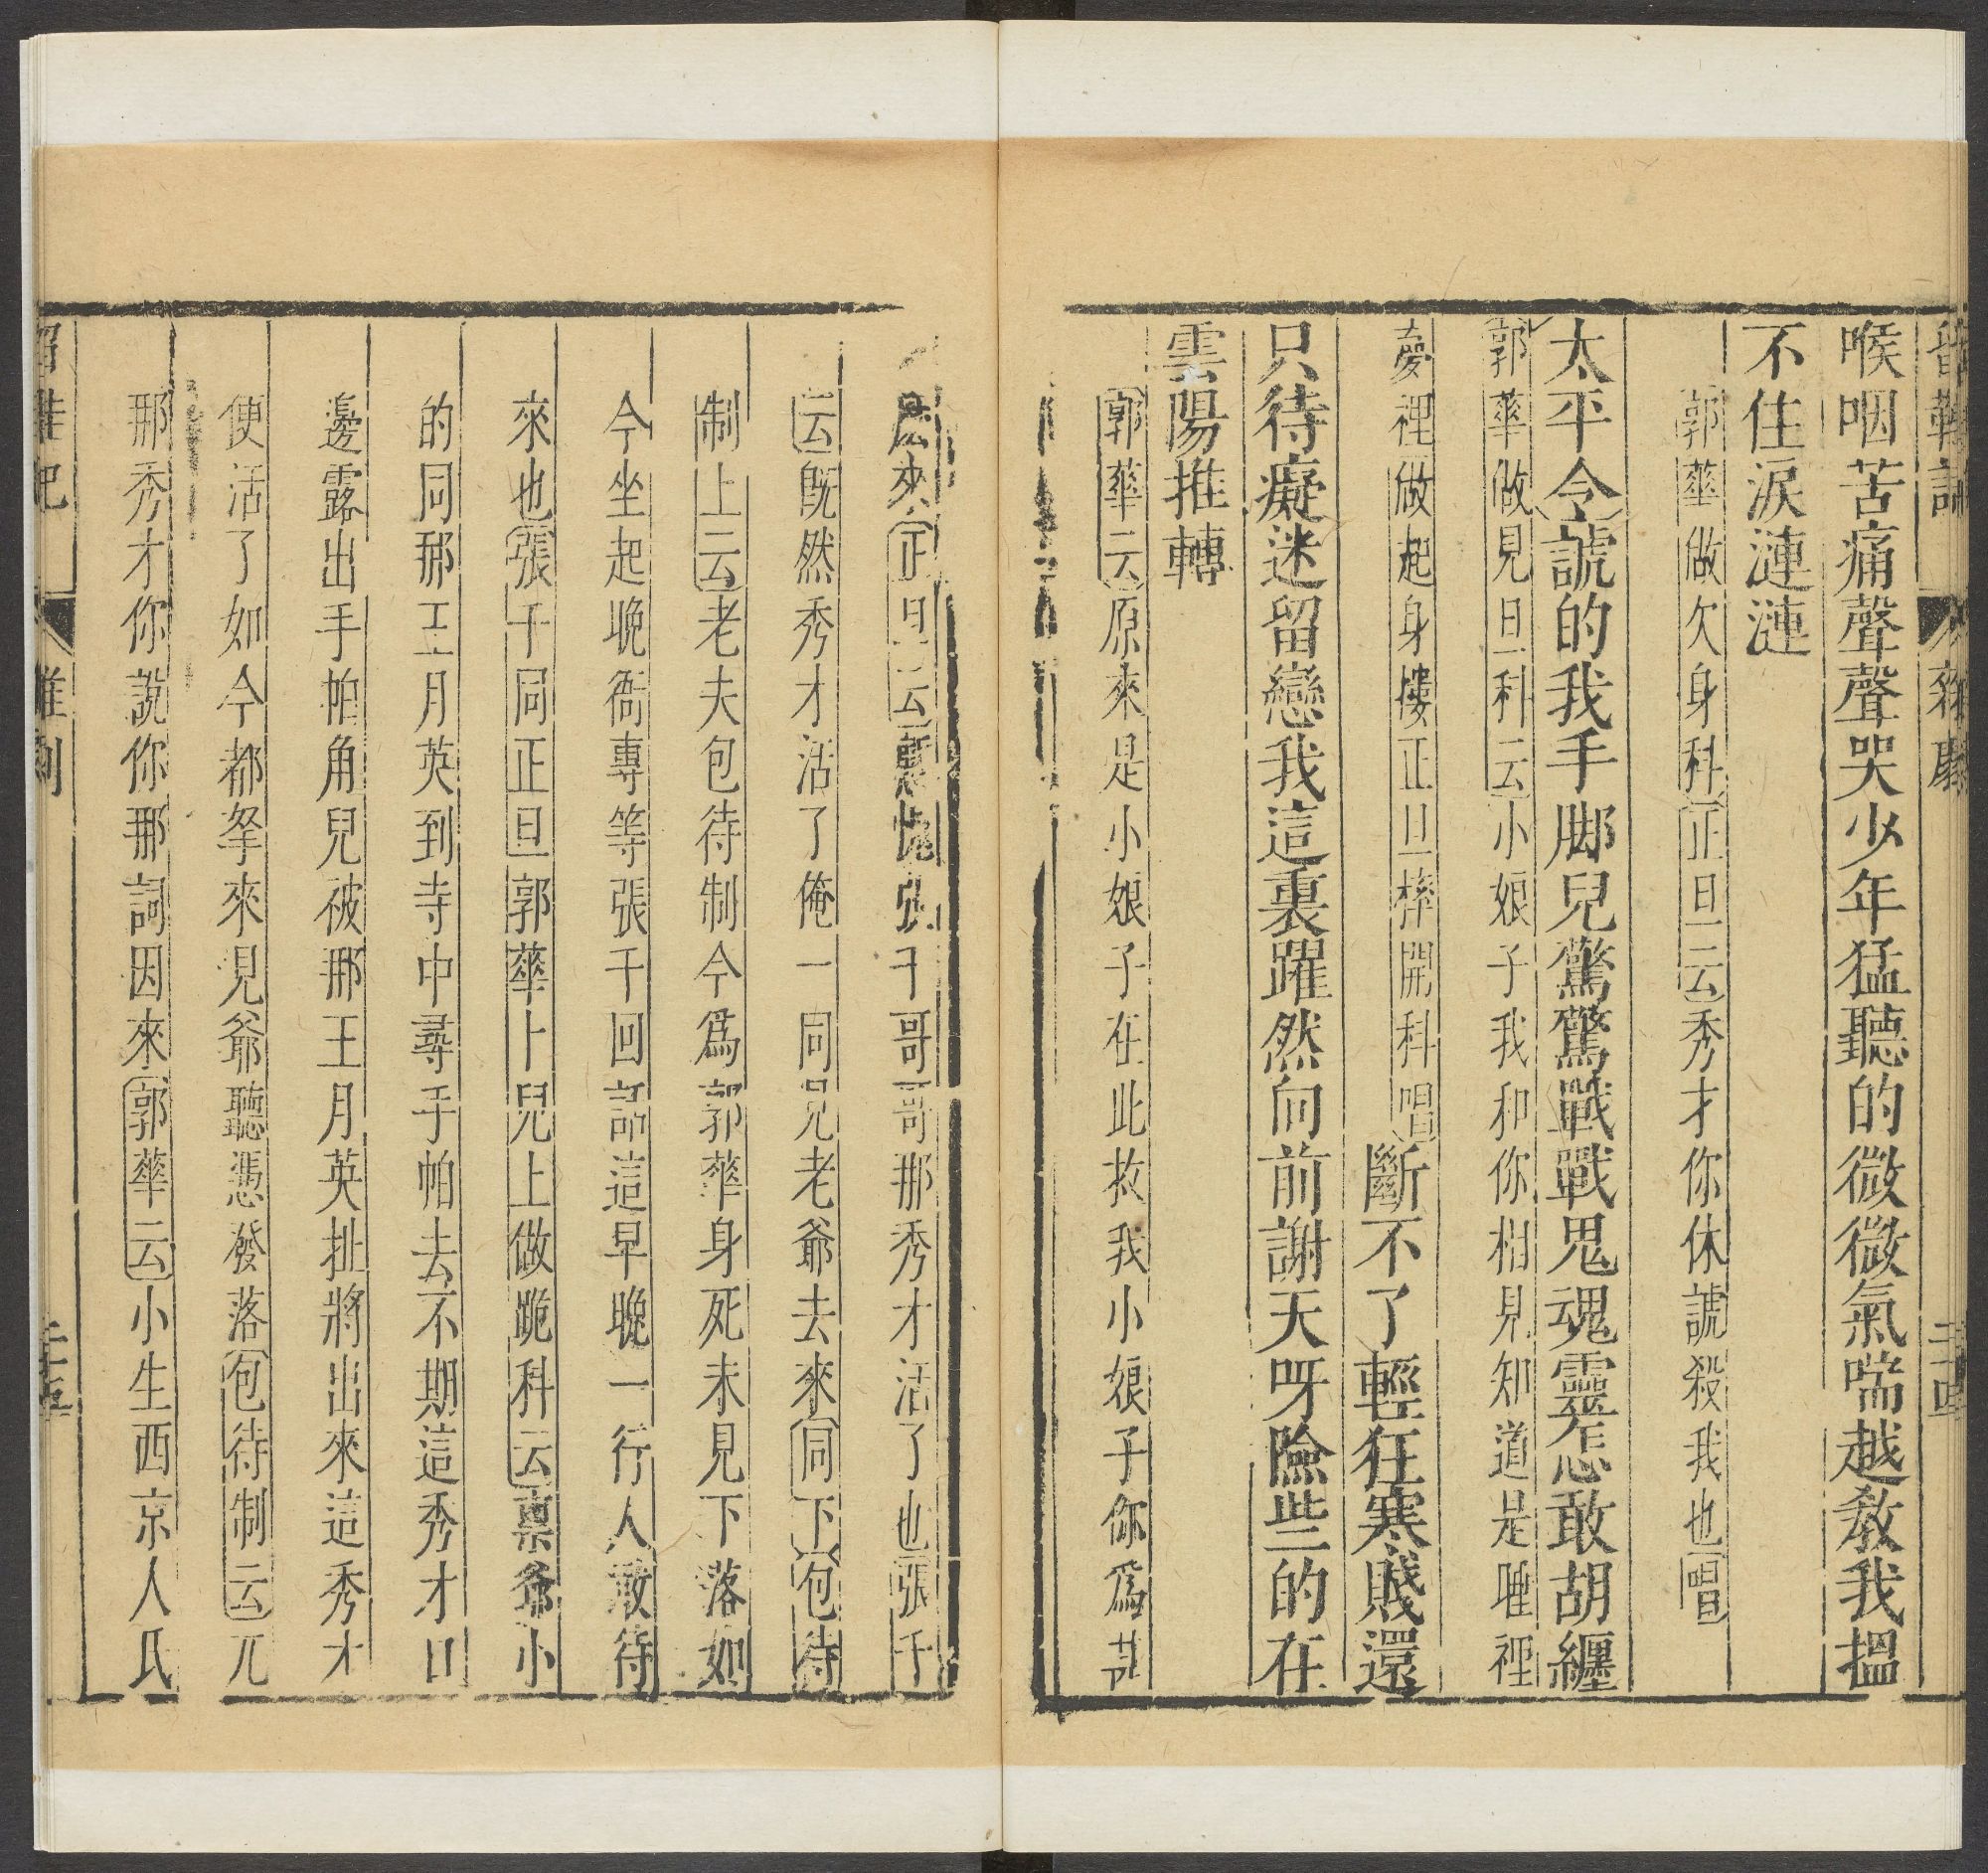 喉咽苦痛聲聲哭少年猛聽的微微氣喘越敎我搵
不住淚漣漣
郭華做欠身科正旦云秀才你休諕殺我也唱
太平令諕的我手脚兒驚驚戰戰鬼魂靈怎敢胡纏
郭華做見旦科云小娘子我和你相見知道是睡裡
夢裡做起身摟正旦摔開科唱斷不了輕狂寒賤還
只待癡迷留戀我這裏躍然向前謝天呀險些的在
雲陽推轉
郭華云原來是小娘子在此救我小娘子你爲甚
來正旦云慙愧張千哥哥那秀才活了也張千
云既然秀才活了俺一同見老爺去來同下包待
制上云老夫包待制今爲郭華身死未見下落如
今坐起晚衙專等張千回話這早晚一行人敢待
來也張千同正旦郭華卜兒上做跪科云稟爺小
的同那王月英到寺中尋手帕去不期這秀才口
邊露出手帕角兒被那王月英扯將出來這秀才
便活了如今都拏來見爺聽憑發落包待制云兀
那秀才你說你那詞因來郭華云小生西京人氏
留鞋記 雜劇